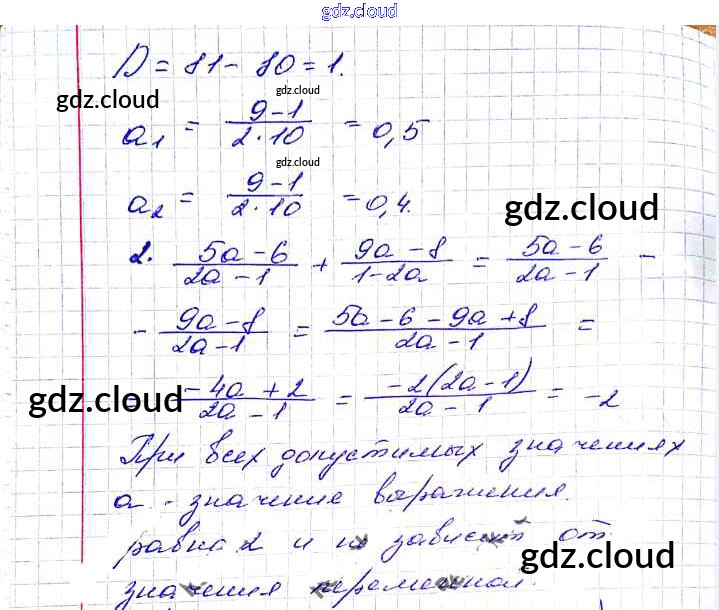 gdz.cloud
gdz.cloud
D = 81 - 80 = 1.
gdz.cloud
gdz.cloud
a₁ = (9-1)/(2·10) = 0,5
gdz.cloud
a₂ = (9-1)/(2·10) = 0,4.
gdz.cloud
2. (5a-6)/(2a-1) + (9a-8)/(1-2a) = (5a-6)/(2a-1) -
- (9a-8)/(2a-1) = (5a-6-9a+8)/(2a-1) =
gdz.cloud
= (-4a+2)/(2a-1) = (-2(2a-1))/(2a-1) = -2
gdz.cloud
При всех допустимых значениях
a - значение выражения.
равна 2 и не зависит от
gdz.cloud
значения переменной.